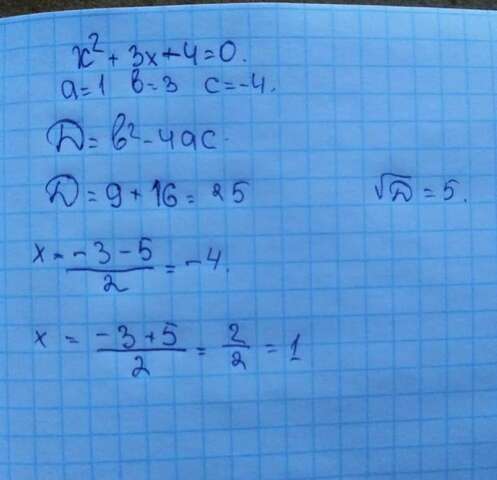 x² + 3x - 4 = 0.
a = 1 b = 3 c = -4.
D = b² - 4ac.
D = 9 + 16 = 25 √D = 5.
x = (-3 - 5)/2 = -4.
x = (-3 + 5)/2 = 2/2 = 1